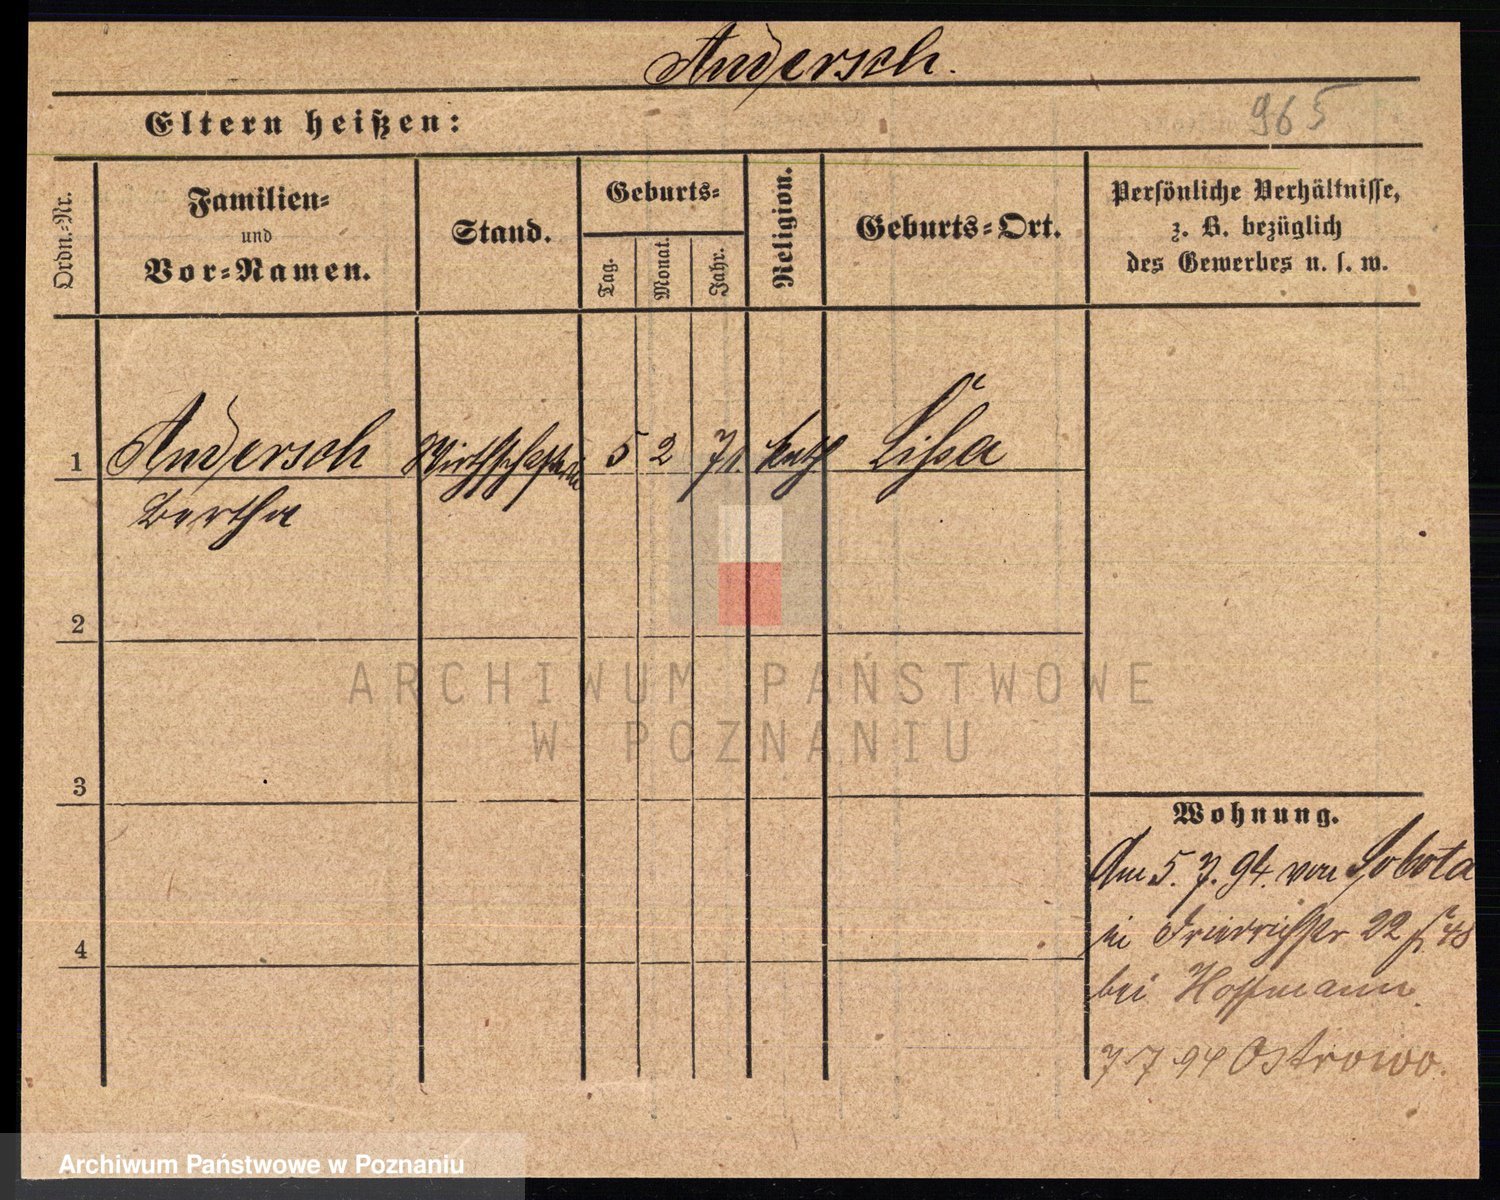 Andersch.
Eltern heißen:
965
Ordn.-Nr.
Familien-
und
Vor-Namen.
Stand.
Geburts-
Tag.
Monat.
Jahr.
Religion.
Geburts-Ort.
Persönliche Verhältnisse,
z. B. bezüglich
des Gewerbes u. s. w.
1 Andersch 5 2 71 kath Lissa
Bertha
2
ARCHIWUM PAŃSTWOWE
W POZNANIU
3
Wohnung.
Am 5. 7. 94. von Sobota
in Friedrichstr 22
4
bei Hoffmann.
7 7 94 Ostrowo.
Archiwum Państwowe w Poznaniu